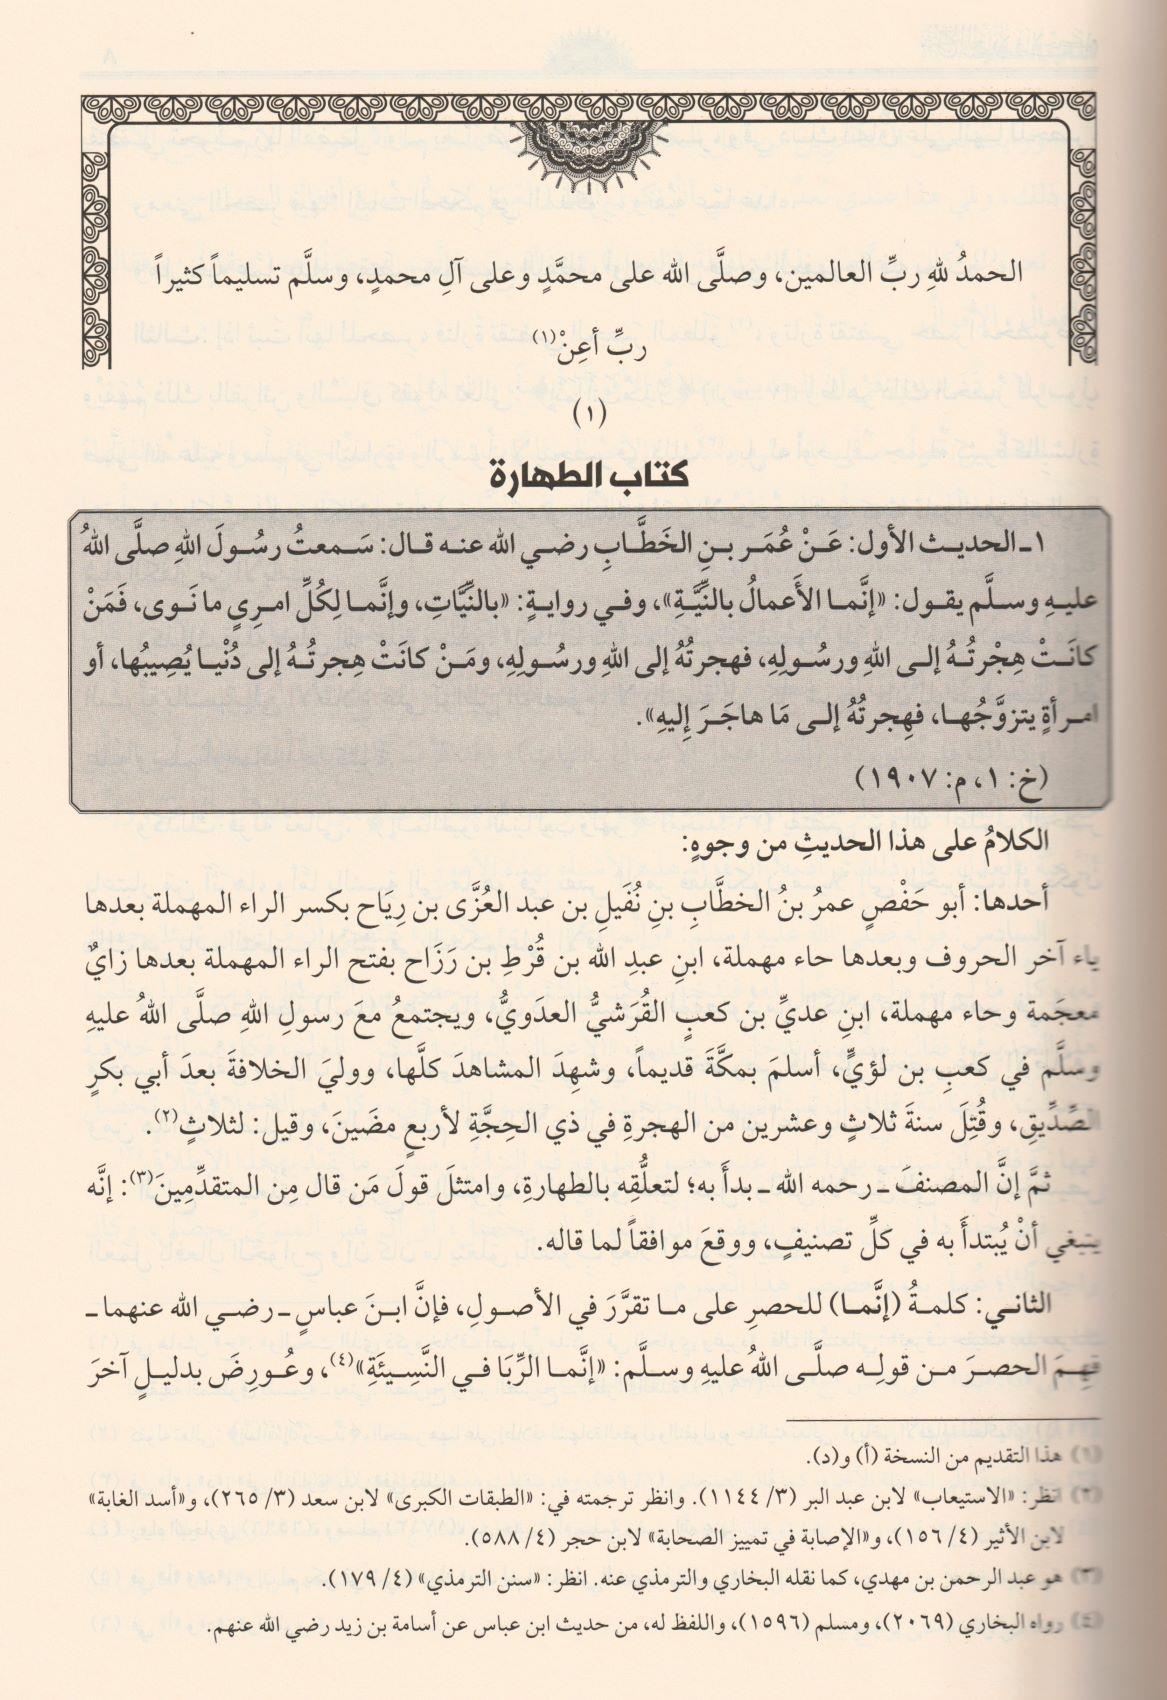 الحمدُ للهِ ربِّ العالمين، وصلَّى الله على محمَّدٍ وعلى آلِ محمدٍ، وسلَّم تسليماً كثيراً
ربِّ أعِنْ(١)
(١)
كتاب الطهارة
١ـ الحديث الأول: عَنْ عُمَر بنِ الخَطَّابِ رضي الله عنه قال: سَمعتُ رسُولَ اللهِ صلَّى اللهُ
عليهِ وسلَّم يقول: «إنَّما الأَعمالُ بالنيَّةِ»، وفي روايةٍ: «بالنِّيَّاتِ، وإنَّما لِكُلِّ امرِئٍ ما نَوى، فَمَنْ
كانَتْ هِجْرتُهُ إلى اللهِ ورسُولِهِ، فهجرتُهُ إلى اللهِ ورسُولِهِ، ومَنْ كانَتْ هِجرتُهُ إلى دُنْيا يُصِيبُها، أو
امرأةٍ يتزوَّجُها، فهِجرتُهُ إلى مَا هاجَرَ إليهِ».
(خ: ١، م: ١٩٠٧)
الكلامُ على هذا الحديثِ من وجوهٍ:
أحدها: أبو حَفْصٍ عمرُ بنُ الخطَّابِ بنِ نُفَيلِ بنِ عبد العُزَّى بن رِيَاح بكسر الراء المهملة بعدها
ياء آخر الحروف وبعدها حاء مهملة، ابنِ عبدِ الله بن قُرْطِ بن رَزَاح بفتح الراء المهملة بعدها زايٌ
معجَمة وحاء مهملة، ابنِ عديِّ بن كعبٍ القُرَشيُّ العدَويُّ، ويجتمعُ معَ رسولِ اللهِ صلَّى اللهُ عليهِ
وسلَّم في كعبِ بن لؤيٍّ، أسلمَ بمكَّةَ قديماً، وشهِدَ المشاهدَ كلَّها، ووليَ الخلافةَ بعدَ أبي بكرٍ
الصِّدِّيقِ، وقُتِلَ سنةَ ثلاثٍ وعشرين من الهجرةِ في ذي الحِجَّةِ لأربعٍ مضَينَ، وقيل: لثلاثٍ(٢).
ثمَّ إنَّ المصنفَ ـ رحمه الله ـ بدأَ به؛ لتعلُّقِه بالطهارةِ، وامتثلَ قولَ مَن قال مِن المتقدِّمِينَ(٣): إنَّه
ينبغي أنْ يُبتدأَ به في كلِّ تصنيفٍ، ووقعَ موافقاً لما قاله.
الثاني: كلمةُ (إنَّما) للحصرِ على ما تقرَّرَ في الأصولِ، فإنَّ ابنَ عباسٍ ـ رضي الله عنهما ـ
فهِمَ الحصرَ من قولِه صلَّى اللهُ عليهِ وسلَّم: «إنَّما الرِّبَا في النَّسِيئَةِ»(٤)، وعُورِضَ بدليلٍ آخرَ
(١) هذا التقديم من النسخة (أ) و(د).
(٢) انظر: «الاستيعاب» لابن عبد البر (٣/ ١١٤٤). وانظر ترجمته في: «الطبقات الكبرى» لابن سعد (٣/ ٢٦٥)، و«أسد الغابة»
لابن الأثير (٤/ ١٥٦)، و«الإصابة في تمييز الصحابة» لابن حجر (٤/ ٥٨٨).
(٣) هو عبد الرحمن بن مهدي، كما نقله البخاري والترمذي عنه. انظر: «سنن الترمذي» (٤/ ١٧٩).
(٤) رواه البخاري (٢٠٦٩)، ومسلم (١٥٩٦)، واللفظ له، من حديث ابن عباس عن أسامة بن زيد رضي الله عنهم.